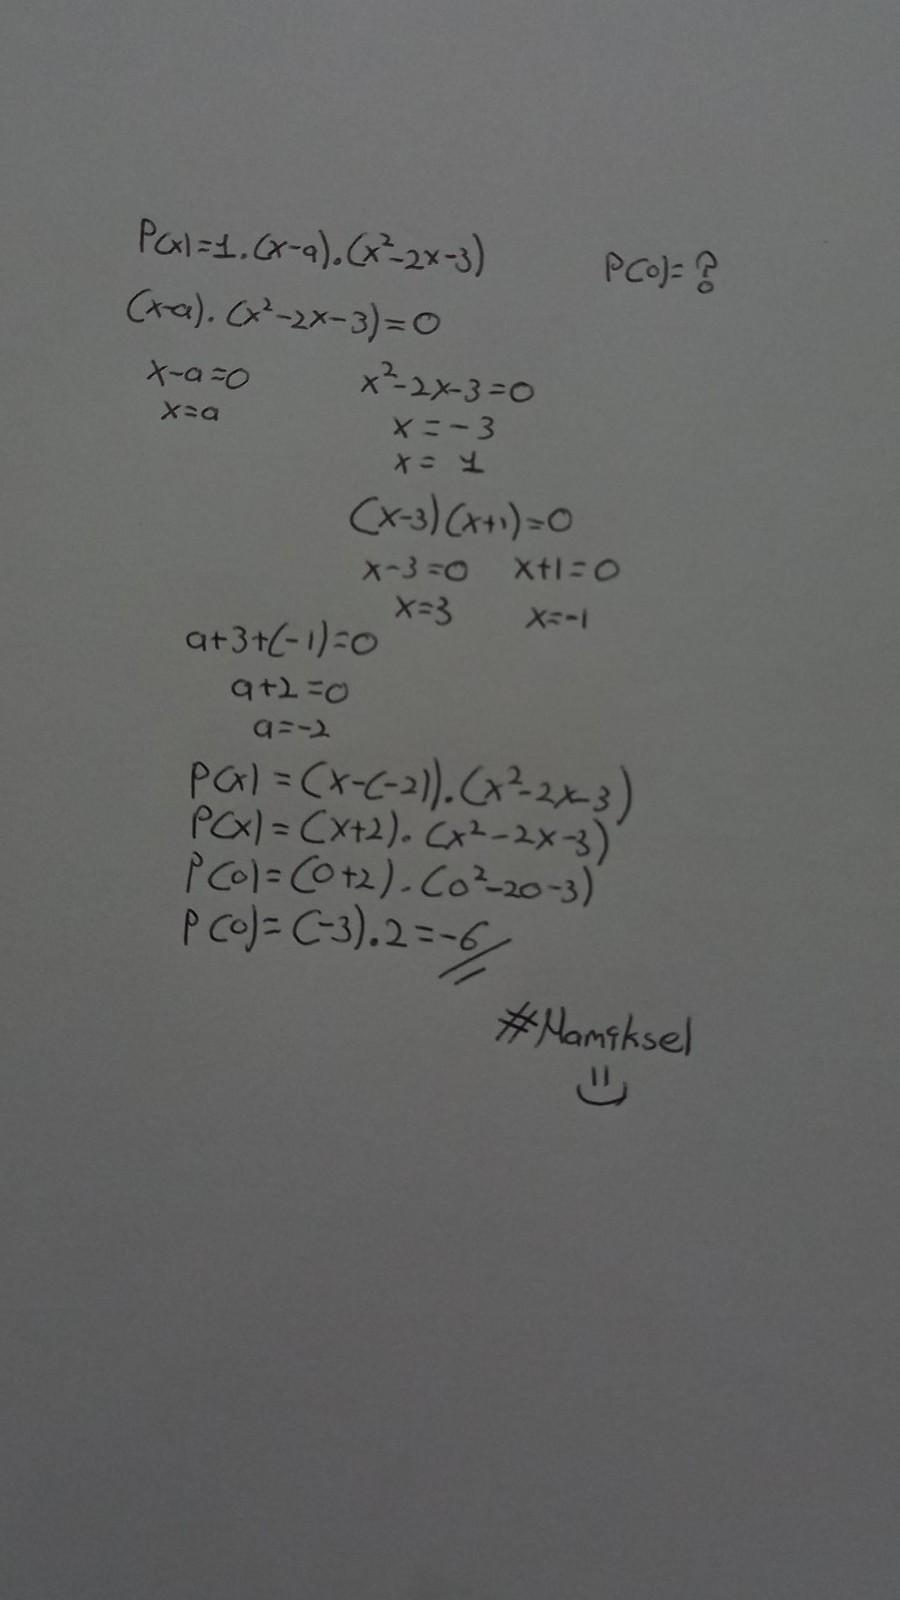 P(x)=1.(x-a).(x²-2x-3)
P(0)=?
(x-a).(x²-2x-3)=0
x-a=0 x²-2x-3=0
x=a x=-3
x= 1
(x-3)(x+1)=0
x-3=0 x+1=0
x=3 x=-1
a+3+(-1)=0
a+2=0
a=-2
P(x)=(x-(-2)).(x²-2x-3)
P(x)=(x+2).(x²-2x-3)
P(0)=(0+2).(0²-20-3)
P(0)=(-3).2=-6
#Namıksel